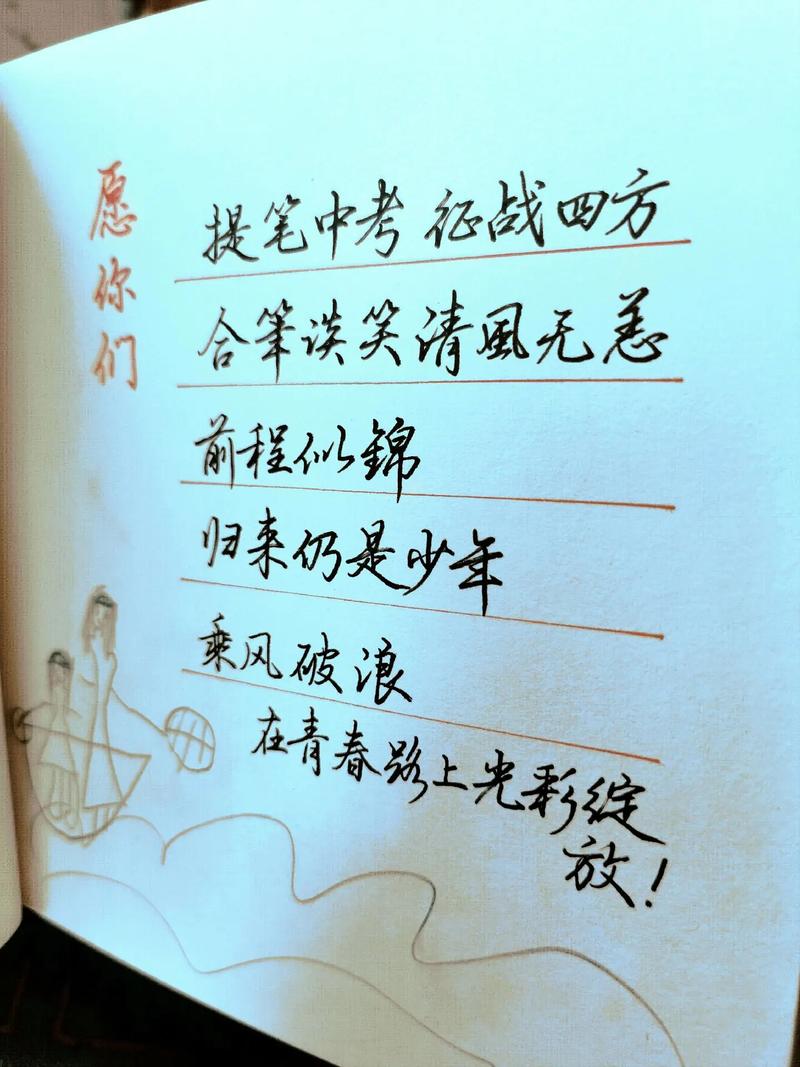 愿你们
提笔中考 征战四方
合笔谈笑清風无恙
前程似錦
归来仍是少年
乘风破浪
在青春路上光彩绽
放！